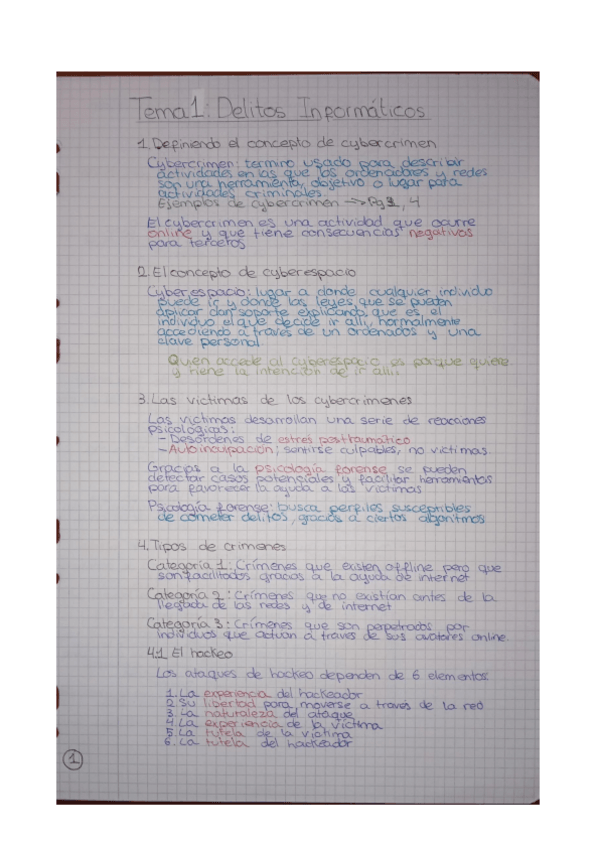 Tema 1: Delitos Informáticos
1. Definiendo el concepto de cybercrimen
Cybercrimen: termino usado para describir
actividades en las que los ordenadores y redes
son una herramienta, objetivo o lugar para
actividades criminales
Ejemplos de cybercrimen → Pg 3, 4
El cybercrimen es una actividad que ocurre
online y que tiene consecuencias negativas
para terceros
2. El concepto de cyberespacio
Cyberespacio: lugar a donde cualquier individuo
puede ir y donde las leyes que se pueden
aplicar dan soporte explicando que es el
individuo el que decide ir allí, normalmente
accediendo a través de un ordenados y una
clave personal
Quien accede al cyberespacio es porque quiere
y tiene la intención de ir allí.
3. Las victimas de los cybercrimenes
Las victimas desarrollan una serie de reacciones
psicológicas:
- Desordenes de estrés posttraumático
- Autoinculpación; sentirse culpables, no victimas
Gracias a la psicología forense se pueden
detectar casos potenciales y facilitar herramientas
para favorecer la ayuda a las victimas
Psicología forense: busca perfiles susceptibles
de cometer delitos, gracias a ciertos algoritmos
4. Tipos de crimenes
Categoría 1: Crímenes que existen offline pero que
son facilitados gracias a la ayuda de internet
Categoría 2: Crímenes que no existían antes de la
llegada de las redes y de internet
Categoría 3: Crímenes que son perpetrados por
individuos que actúan a través de sus avatares online
4.1 El hackeo
Los ataques de hackeo dependen de 6 elementos
1. La experiencia del hackeador
2. Su libertad para moverse a través de la red
3. La naturaleza del ataque
4. La experiencia de la víctima
5. La tutela de la víctima
6. La tutela del hackeador
1